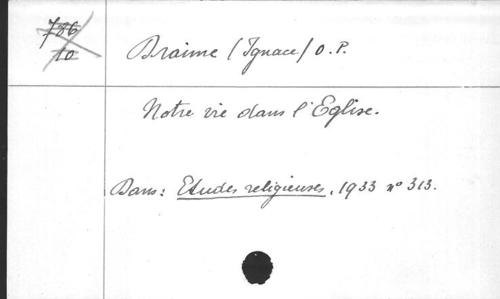 786
10
Braime (Ignace) O.P.
Notre vie dans l'Eglise.
Dans: Etudes religieuses, 1933 n° 313.